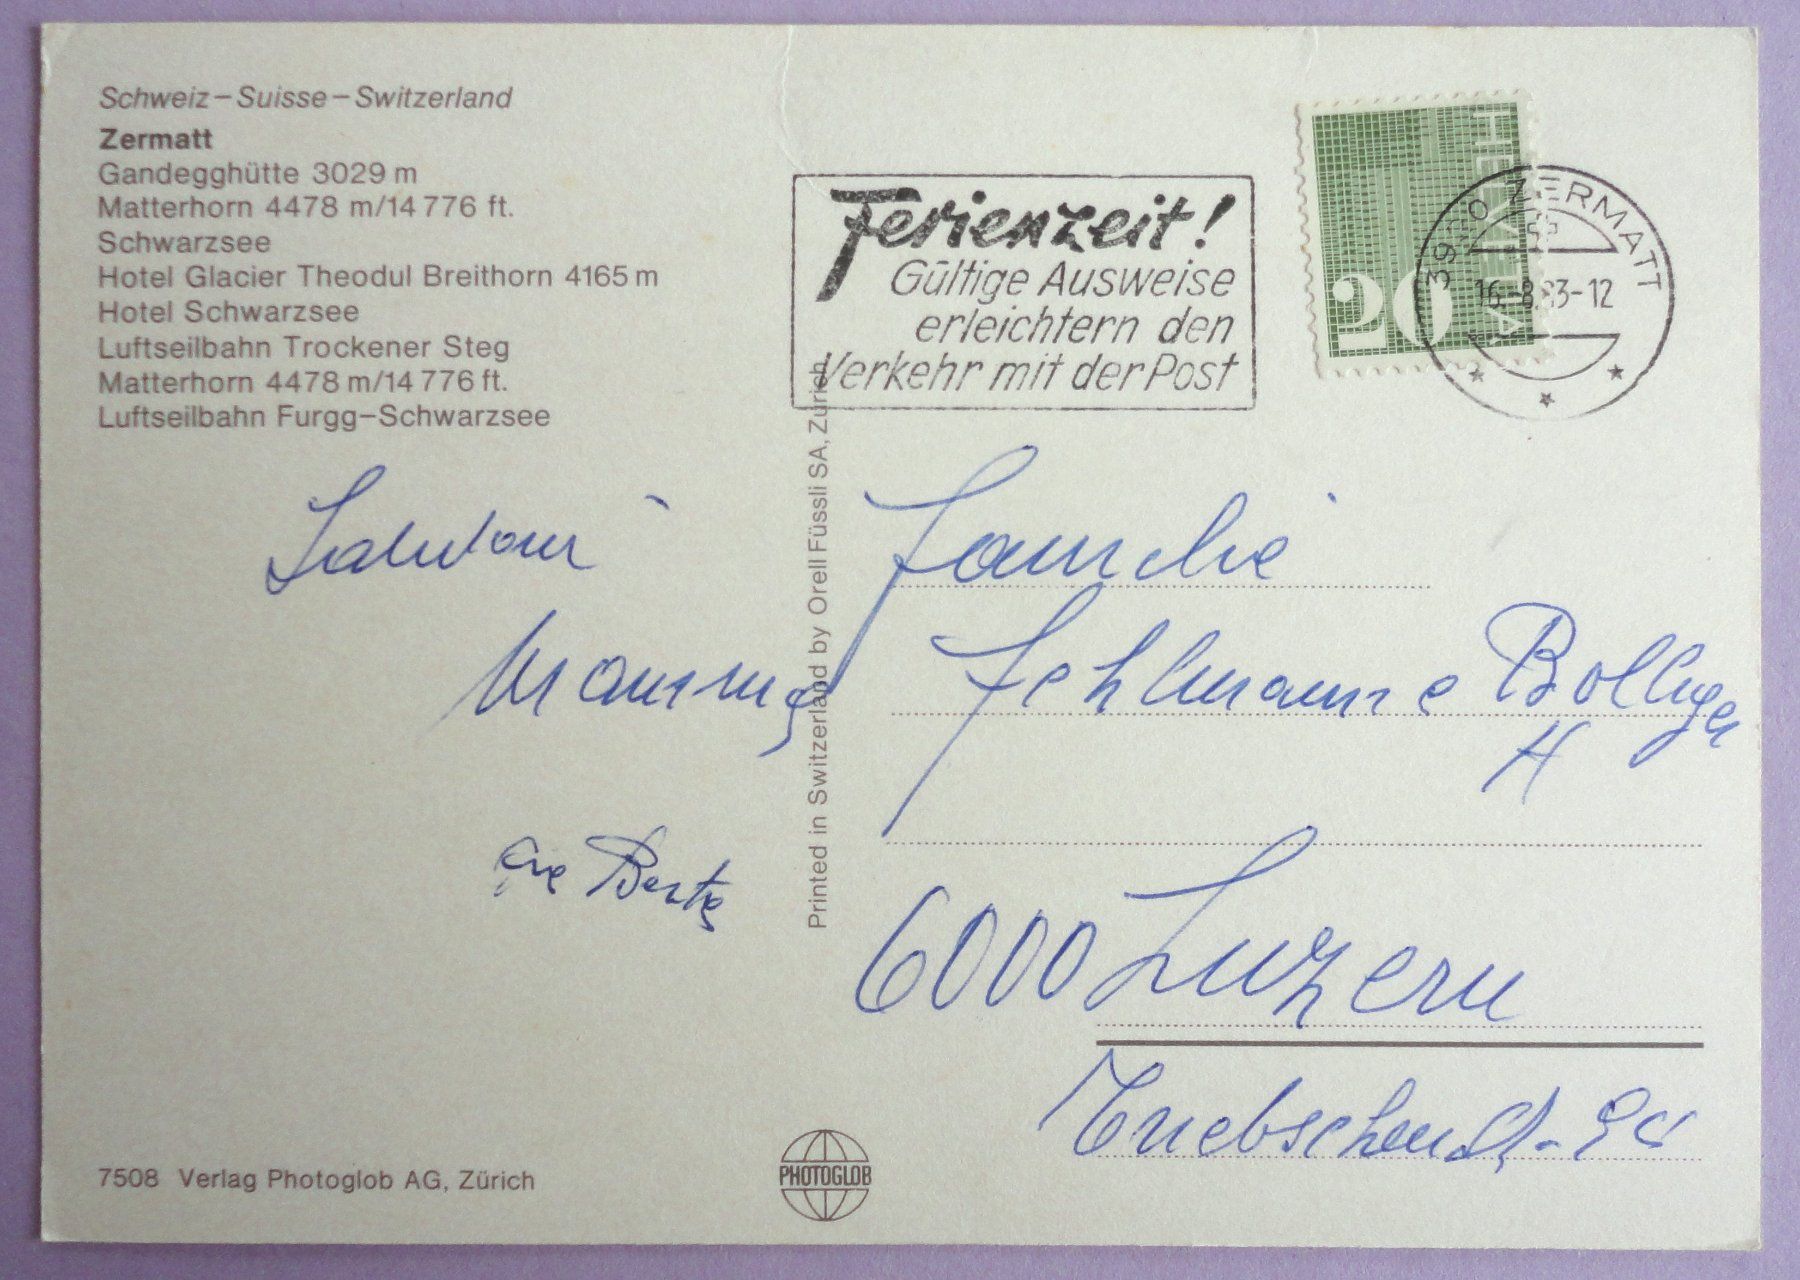 Schweiz – Suisse – Switzerland
Zermatt
Gandegghütte 3029 m
Matterhorn 4478 m/14 776 ft.
Schwarzsee
Hotel Glacier Theodul Breithorn 4165 m
Hotel Schwarzsee
Luftseilbahn Trockener Steg
Matterhorn 4478 m/14 776 ft.
Luftseilbahn Furgg–Schwarzsee
Ferienzeit!
Gültige Ausweise
erleichtern den
Verkehr mit der Post
HELVETIA
20
3920 ZERMATT
16.-8.83-12
Printed in Switzerland by Orell Füssli SA, Zürich
Salutoni
Mammy
Berta
Familie
Fehlmann e Bolliger
H
6000 Luzern
7508 Verlag Photoglob AG, Zürich
PHOTOGLOB